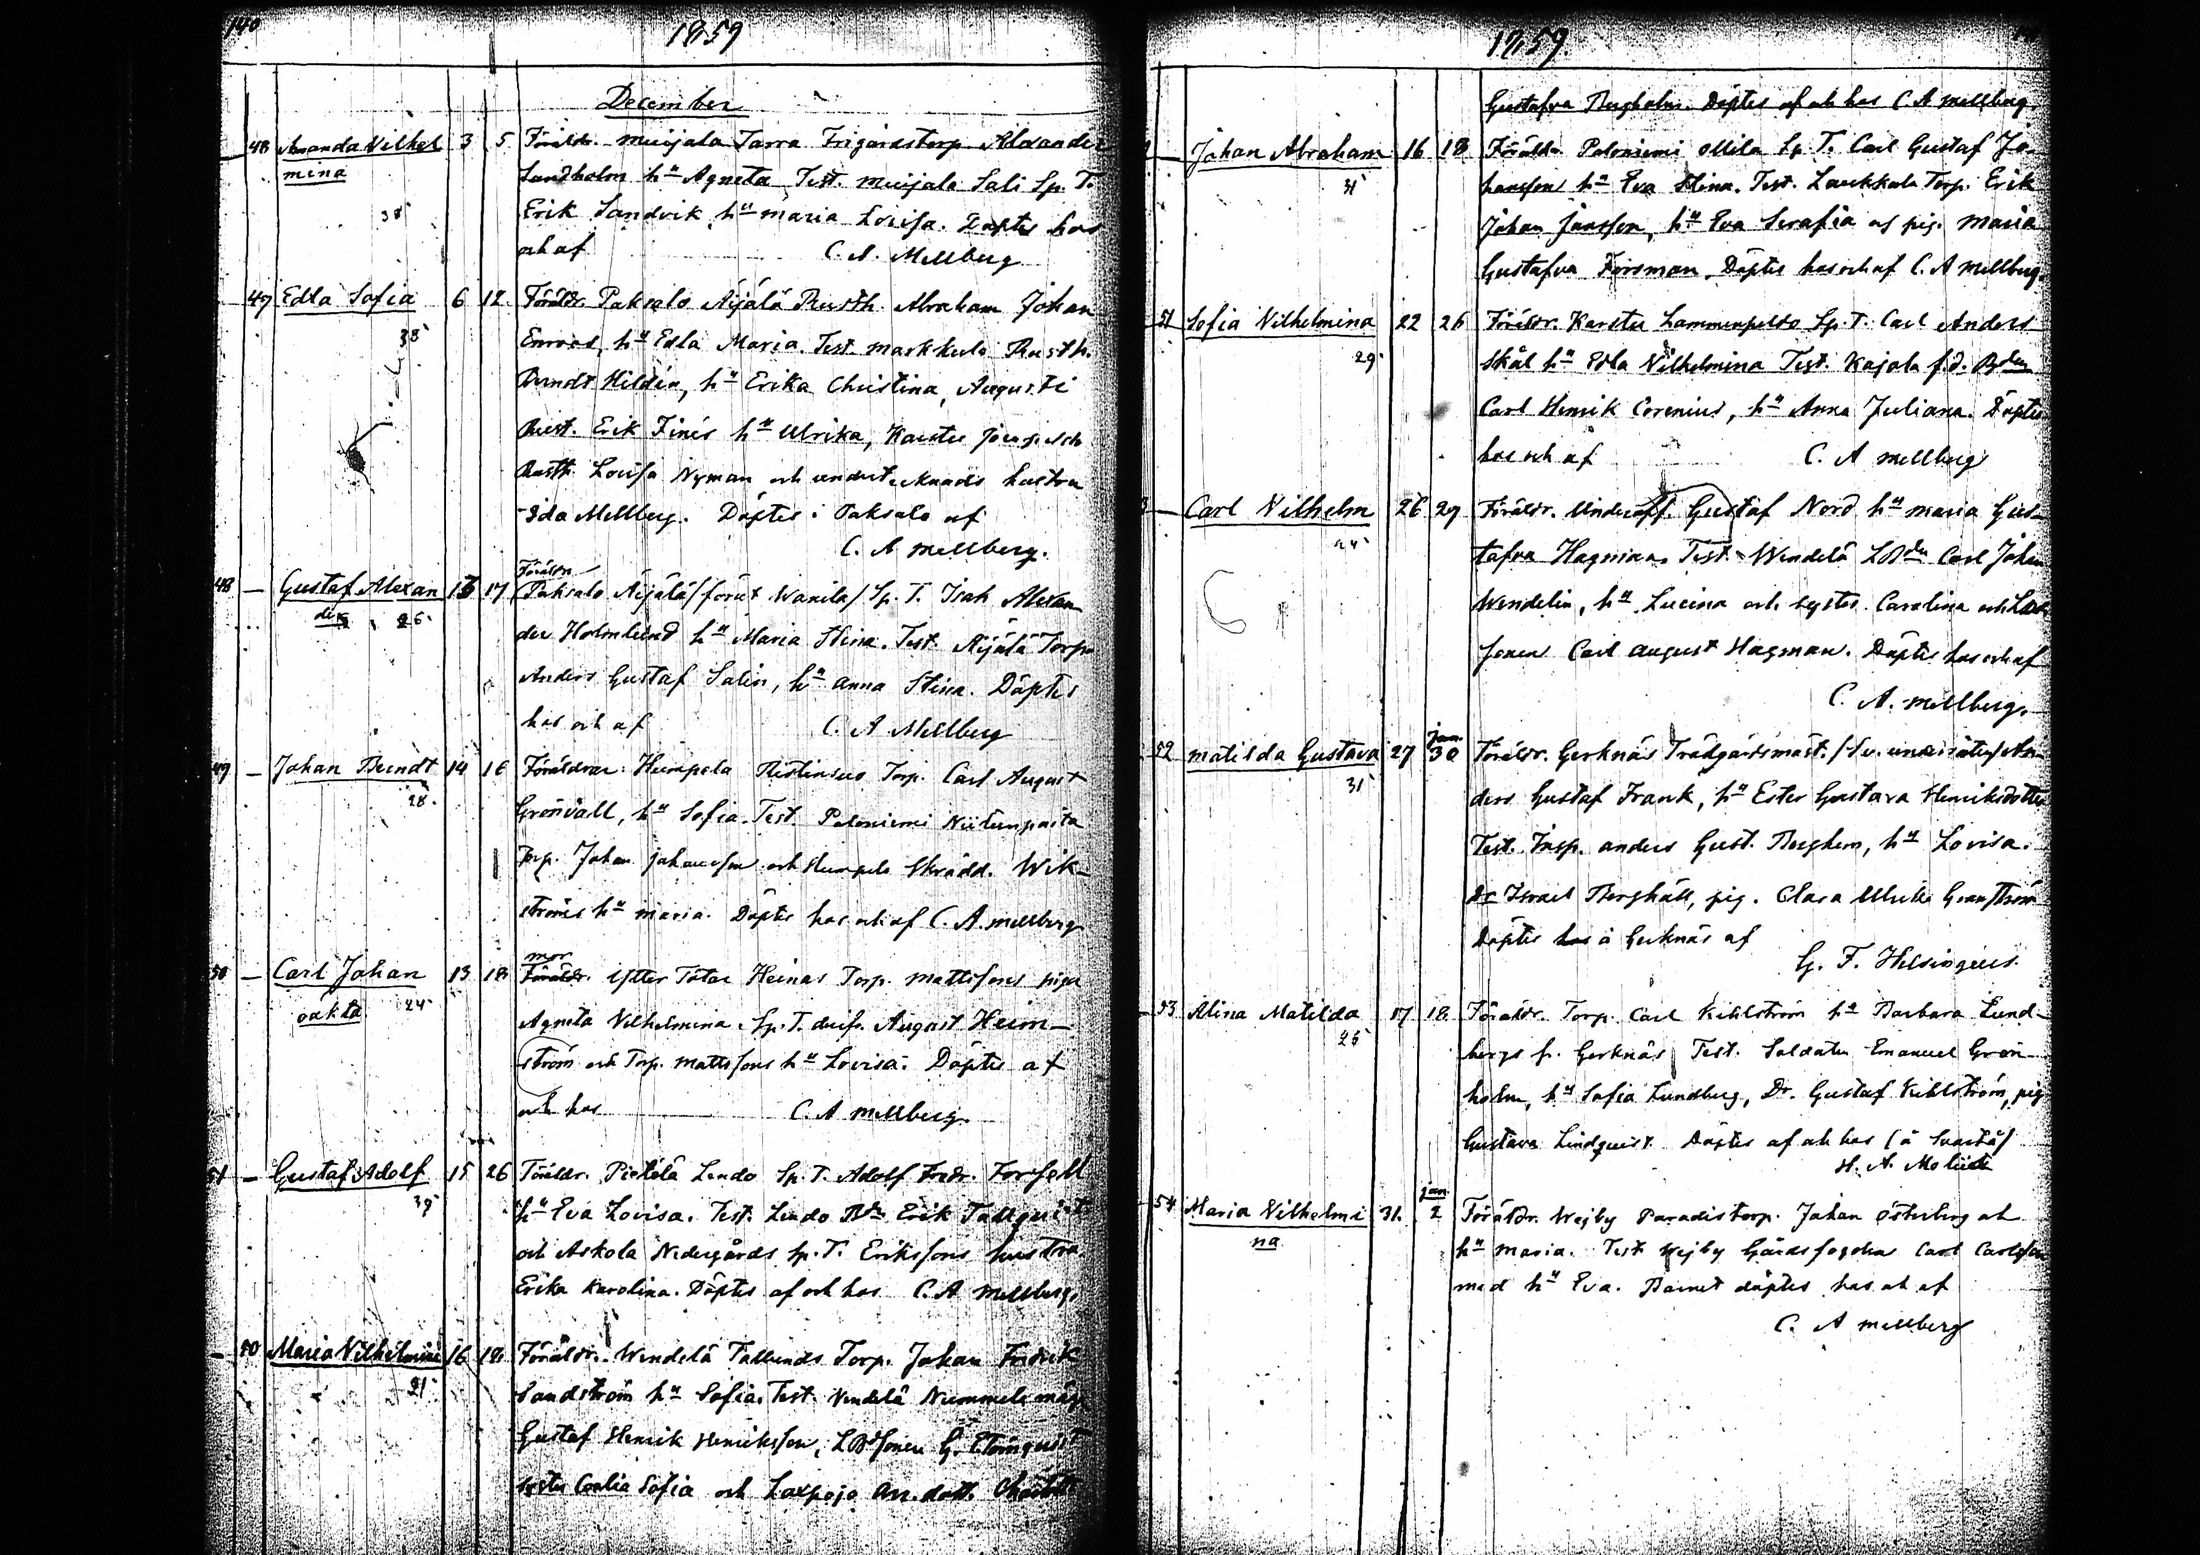 140
1859
December
48 Amanda Vilhel 3 5 Föräldr. Muijala Tarra Frigårdstorp. Alexander
mina Sandholm hu Agneta Test. Muijala Sali Sp. T.
38 Erik Sandvik, hu Maria Lovisa. Döptes hos
och af C. A. Mellberg
49 Edla Sofia 6 12 Föräldr. Paksalo Äijälä Rusth. Abraham Johan
38 Enroos, hu Edla Maria. Test. Markkula Rusth.
Berndt Hildén, hu Erika Christina, Augusti
Rust. Erik Finér hu Ulrika, Karstu
Rusth. Lovisa Nyman och undertecknads hustru
Ida Mellberg. Döptes i Paksalo af
C. A Mellberg.
Föräldr.
48 — Gustaf Alexan 13 17 Paksalo Äijälä /förut Wanila/ Sp. T. Isak Alexan
der 26. der Holmlund hu Maria Stina. Test. Äijälä Torp.
Anders Gustaf Salin, hu Anna Stina. Döptes
hos och af C. A Mellberg
49 — Johan Berndt 14 16 Föräldrar: Humpela Torp. Carl August
28. Grönvall, hu Sofia. Test. Paloniemi
Torp. Johan Johansson och Humpela Skrädd. Wik-
ströms hu Maria. Döptes hos och af C. A. Mellberg
mor
50 — Carl Johan 13 18 Föräldr. Heinas Torp. Mattssons piga
oäkta 24 Agneta Vilhelmina. Sp. T. August Heim-
ström och Torp. Mattssons hu Lovisa. Döptes af
och hos C. A Mellberg.
51 — Gustaf Adolf 15 26 Föräldr. Pietilä Lindo Sp. T. Adolf Fredr. Forssell
39 hu Eva Lovisa. Test. Lindo Erik Tallquist
och Askola Nedergårds Sp. T. Erikssons hustru
Erika Karolina. Döptes af och hos C. A Mellberg.
50 Maria Vilhelmina 16 18 Föräldr. Wendelä Torp. Johan Fredrik
21 Sandström hu Sofia. Test. Vendelä
Gustaf Henrik Henriksson,
Sofia och
1859.
Gustafva Bergholm. Döptes af och hos C. A Mellberg.
— Johan Abraham 16 18 Föräldr. Paloniemi Ollila Sp. T. Carl Gustaf Jo-
31 hansson hu Eva Stina. Test. Laukkala Torp. Erik
Johan Jansson, hu Eva Serafia och pig. Maria
Gustafva Forsman. Döptes hos och af C. A Mellberg.
51 Sofia Vilhelmina 22 26 Föräldr. Karstu Lammenpelto Sp. T. Carl Anders
29 Skål hu Edla Vilhelmina Test. Kajala f.d. Bden
Carl Henrik Corenius, hu Anna Juliana. Döptes
hos och af C. A Mellberg
— Carl Vilhelm 26 29 Föräldr. Underoff. Gustaf Nord hu Maria Gus-
24 tafva Hagman. Test. Wendelä Carl Johan
Wendelin, hu Lucina och syster Carolina och
sonen Carl August Hagman. Döptes hos och af
C. A. Mellberg.
jan.
52 Matilda Gustava 27 30 Föräldr. Gerknäs Trädgårdsmäst. /Sv. undersåte/ An-
31 ders Gustaf Frank, hu Ester Gustava Henriksdotter
Test. Insp. Anders Gust. Berghem, hu Lovisa.
Dr Israel Berghäll, pig. Clara Ulrika Granström
Döptes hos å Gerknäs af
G. F. Helsingius.
53 Alina Matilda 17 18 Föräldr. Torp. Carl Kihlström hu Barbara Lund-
25 bergs fr. Gerknäs Test. Soldaten Emanuel Grön-
holm, hu Sofia Lundberg, Dr. Gustaf Kihlström, pig
Gustava Lindquist Döptes af och hos (å Svartå/
H. A.
jan.
54 Maria Vilhelmi 31. 2 Föräldr. Wejby Paradistorp. Johan Österberg och
na hu Maria. Test Wejby Gårdsfogden Carl Carlsson
med hu Eva. Barnet döptes hos och af
C. A Mellberg